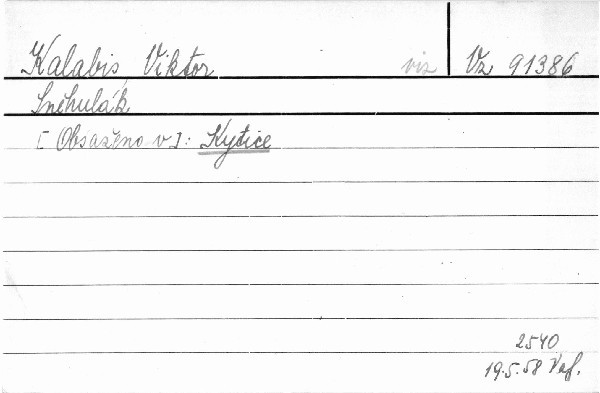 Kalabis Viktor viz Vz 91386
Sněhulák
[Obsaženo v]: Kytice
2540
19.5.58